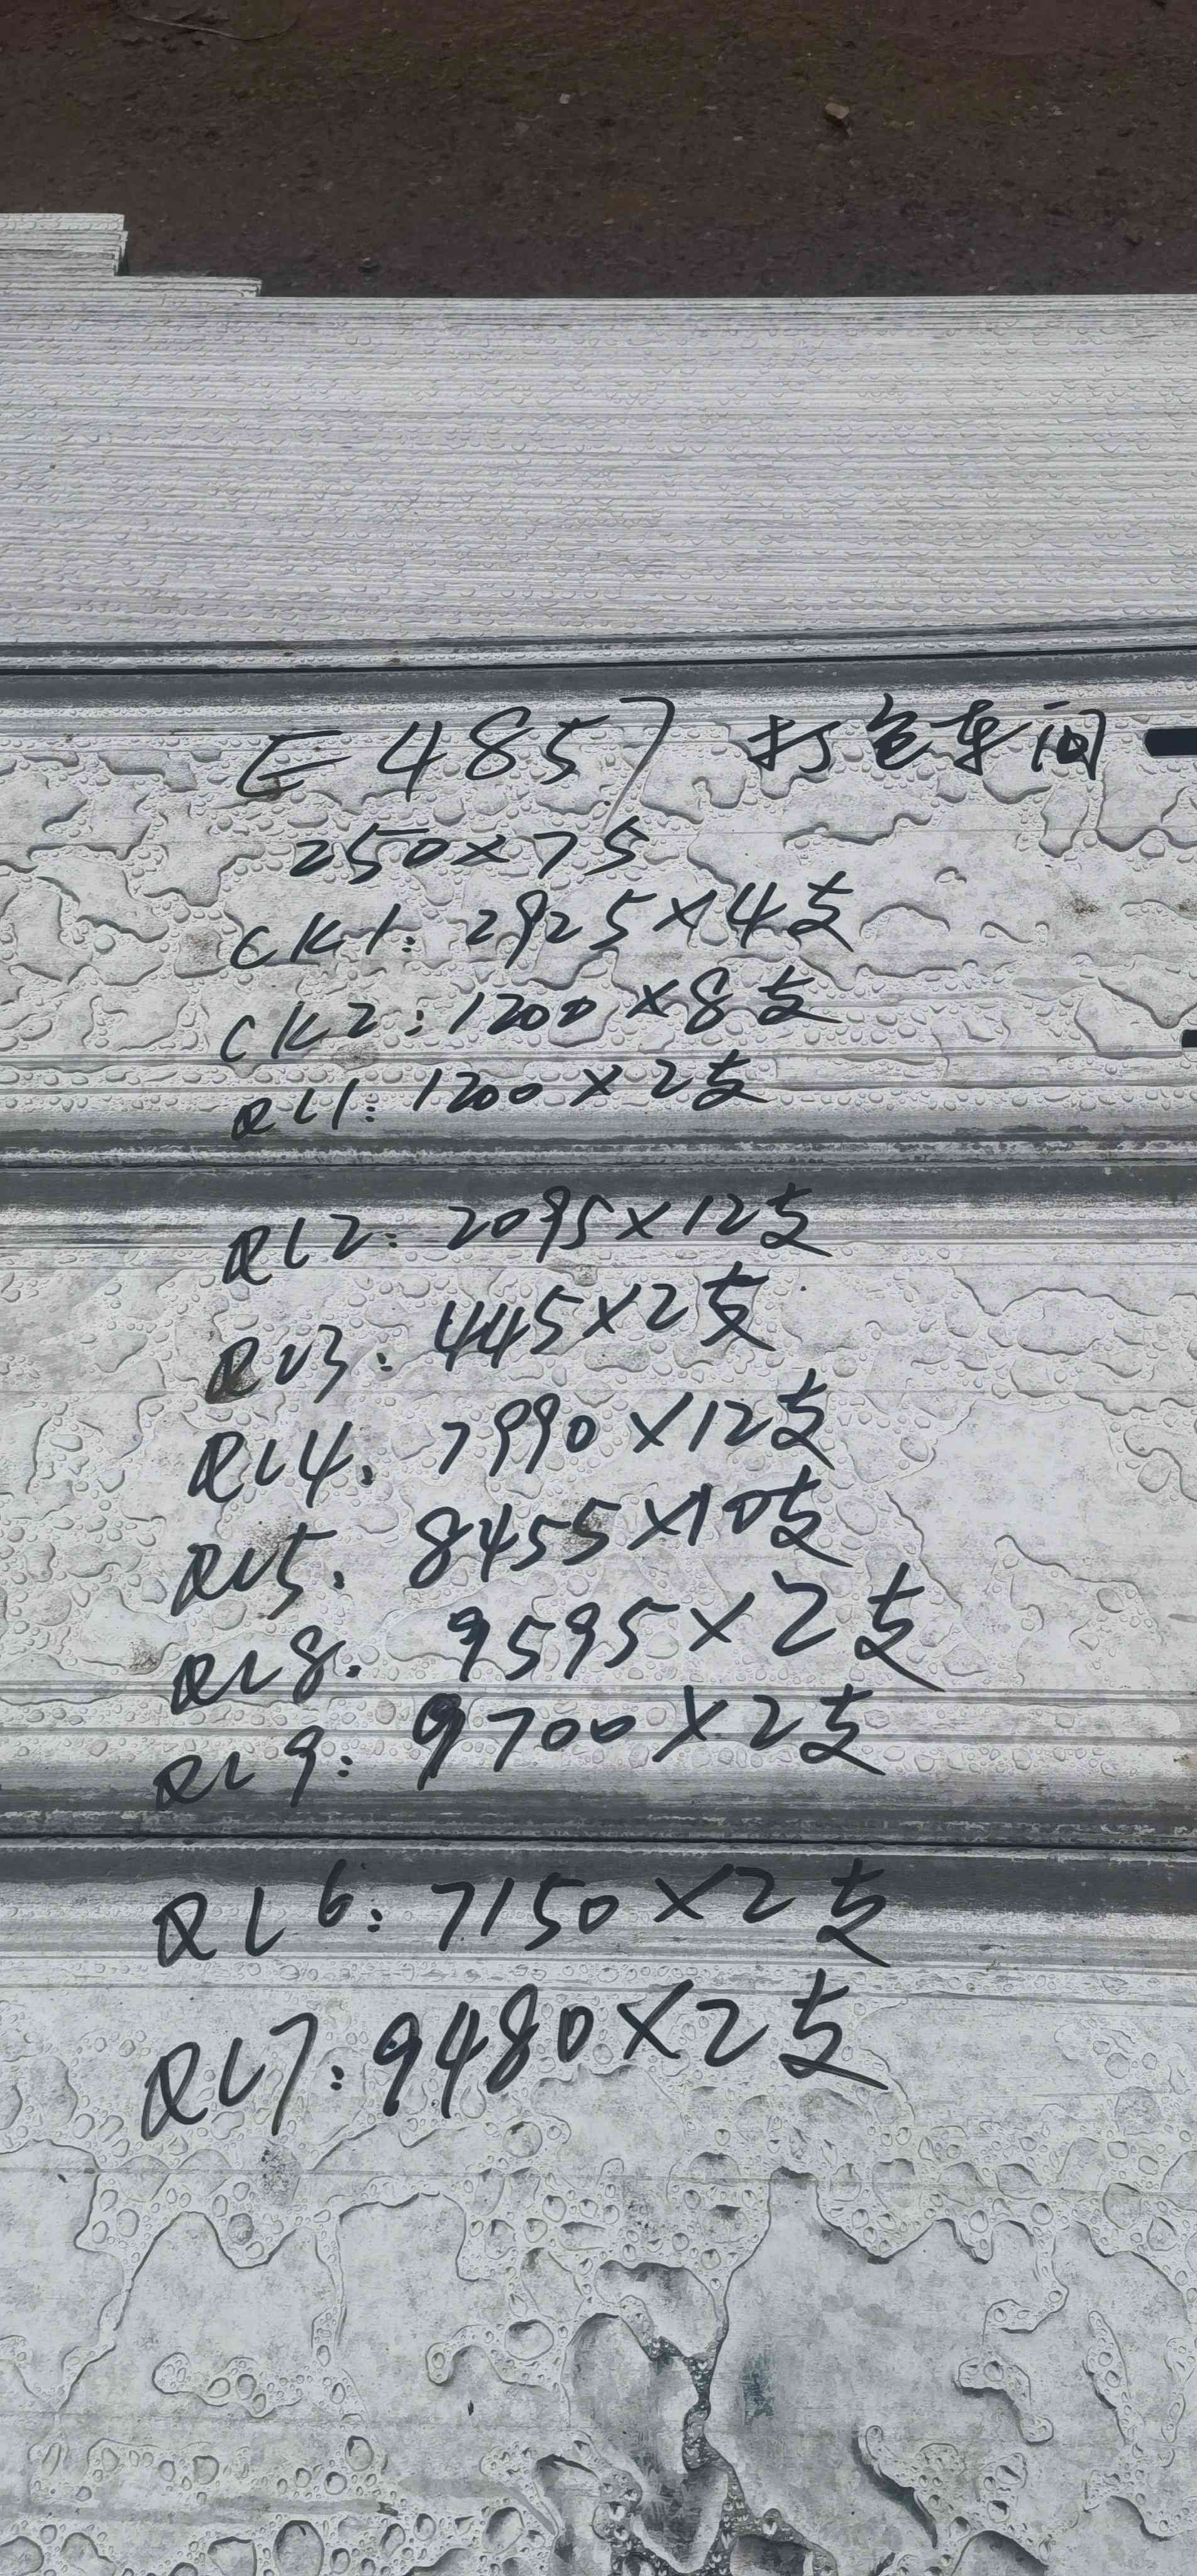 E4857 打包车间
250×75
CK1: 2925×4支
CK2: 1200×8支
QL1: 1200×2支
QL2: 2095×12支
QL3: 445×2支
QL4. 7990×12支
QL5. 8455×10支
QL8. 9595×2支
QL9: 9700×2支
QL6: 7150×2支
QL7: 9480×2支